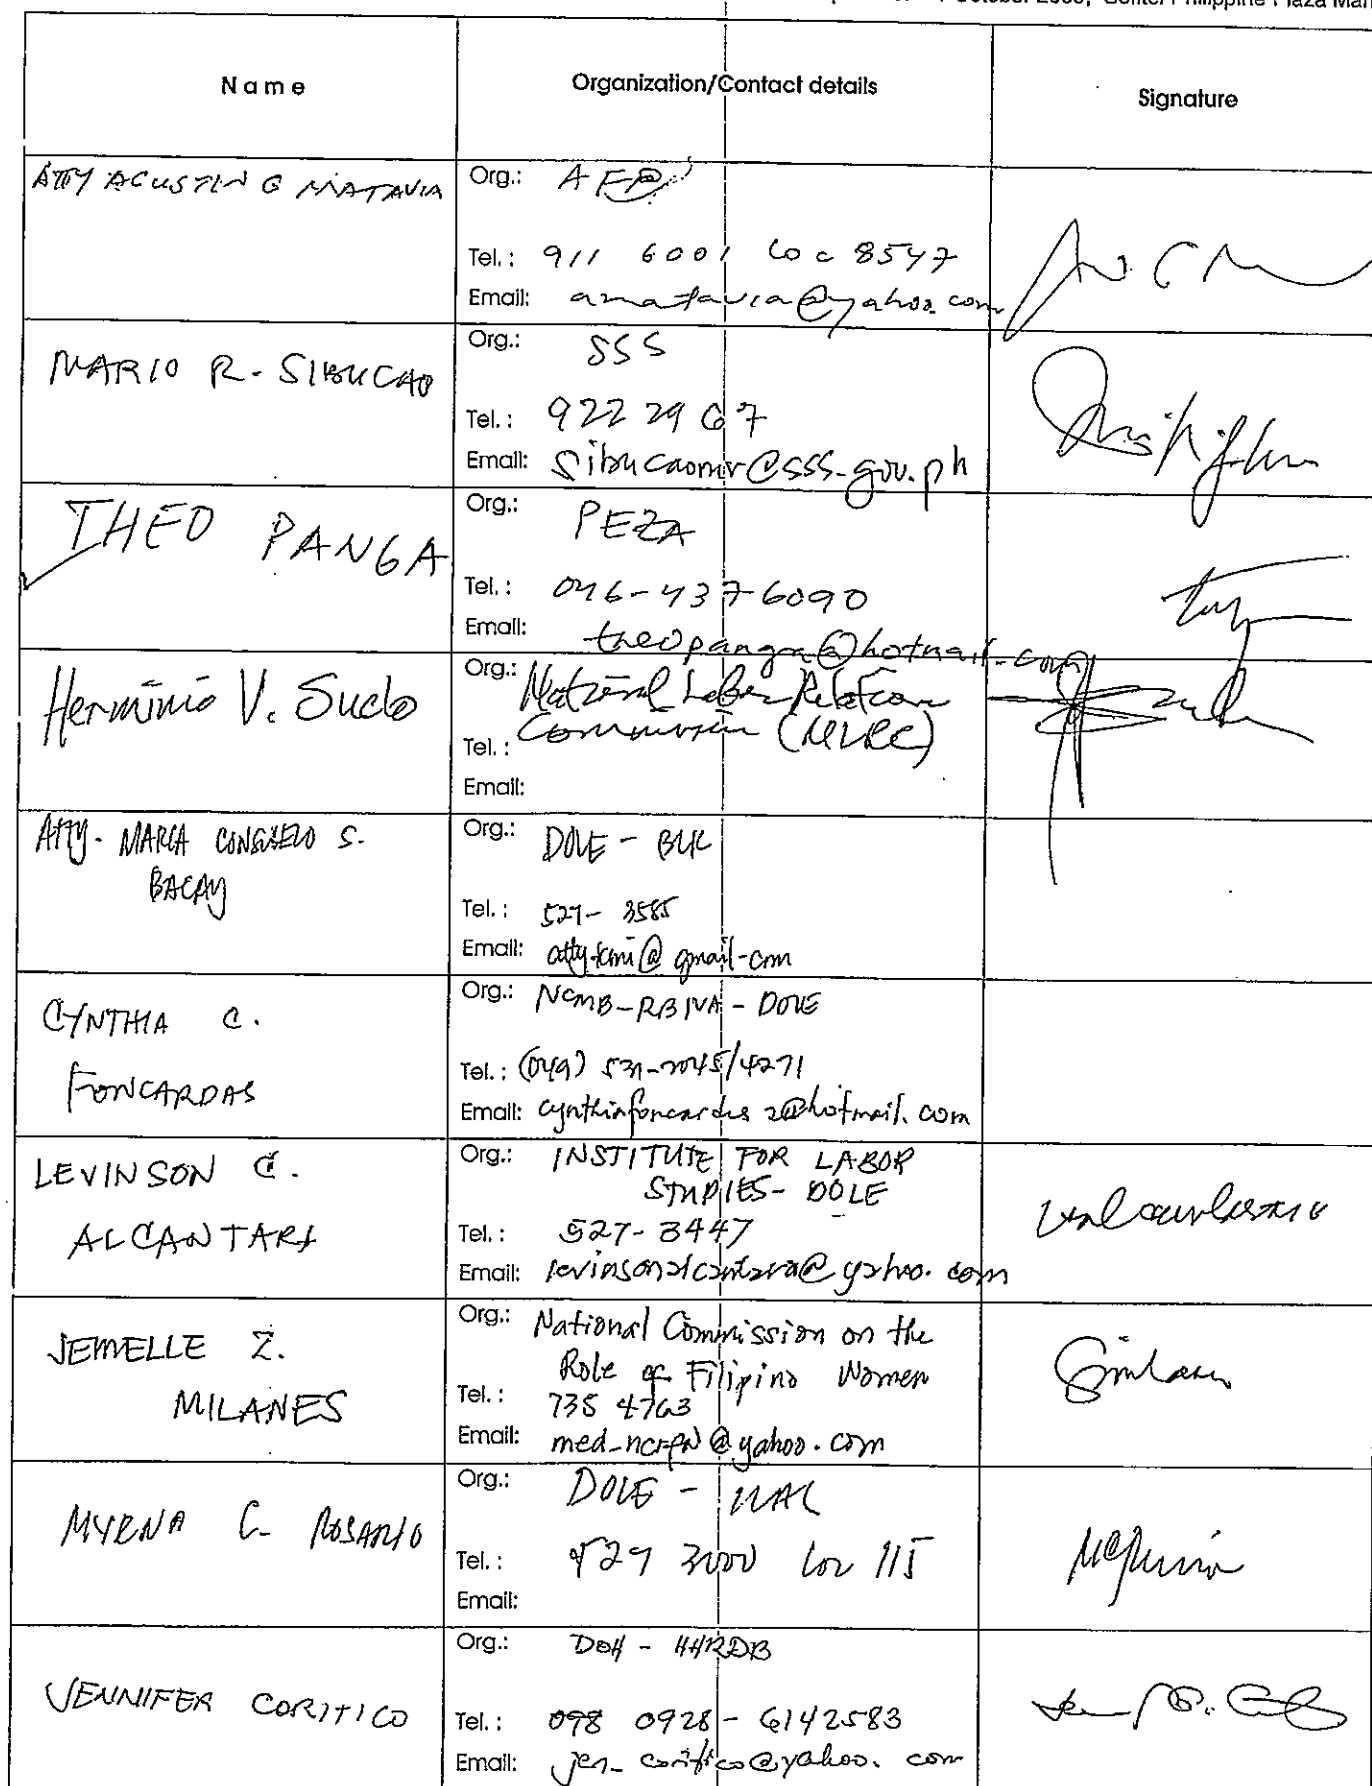 October 2006, Sofitel Philippine Plaza Man
Name Organization/Contact details Signature
ATTY AGUSTIN G MATAVIA
Org.: AFP
Tel.: 911 6001 loc 8547
Email: amatavia@yahoo.com
MARIO R. SIBUCAO
Org.: SSS
Tel.: 922 29 67
Email: sibucaomr@sss.gov.ph
THEO PANGA
Org.: PEZA
Tel.: 046-437 6090
Email: theopanga@hotmail.com
Herminio V. Suelo
Org.: National Labor Relations
Commission (NLRC)
Tel.:
Email:
Atty. MARIA CONSUELO S.
BACAY
Org.: DOLE - BLR
Tel.: 527-3585
Email: @gmail.com
CYNTHIA C.
FONCARDAS
Org.: NCMB-RB IVA - DOLE
Tel.: (049) /4271
Email: cynthiafoncardas2@hotmail.com
LEVINSON C.
ALCANTARA
Org.: INSTITUTE FOR LABOR
STUDIES - DOLE
Tel.: 527-3447
Email: levinsonalcantara@yahoo.com
JEMELLE Z.
MILANES
Org.: National Commission on the
Role of Filipino Women
Tel.: 735 4763
Email: med_ncrfw@yahoo.com
MYRNA C. ROSARIO
Org.: DOLE -
Tel.: 527 3000 loc 115
Email:
JENNIFER CORITICO
Org.: DOH - HHRDB
Tel.: 098 0928-6142583
Email: jen_coritico@yahoo.com